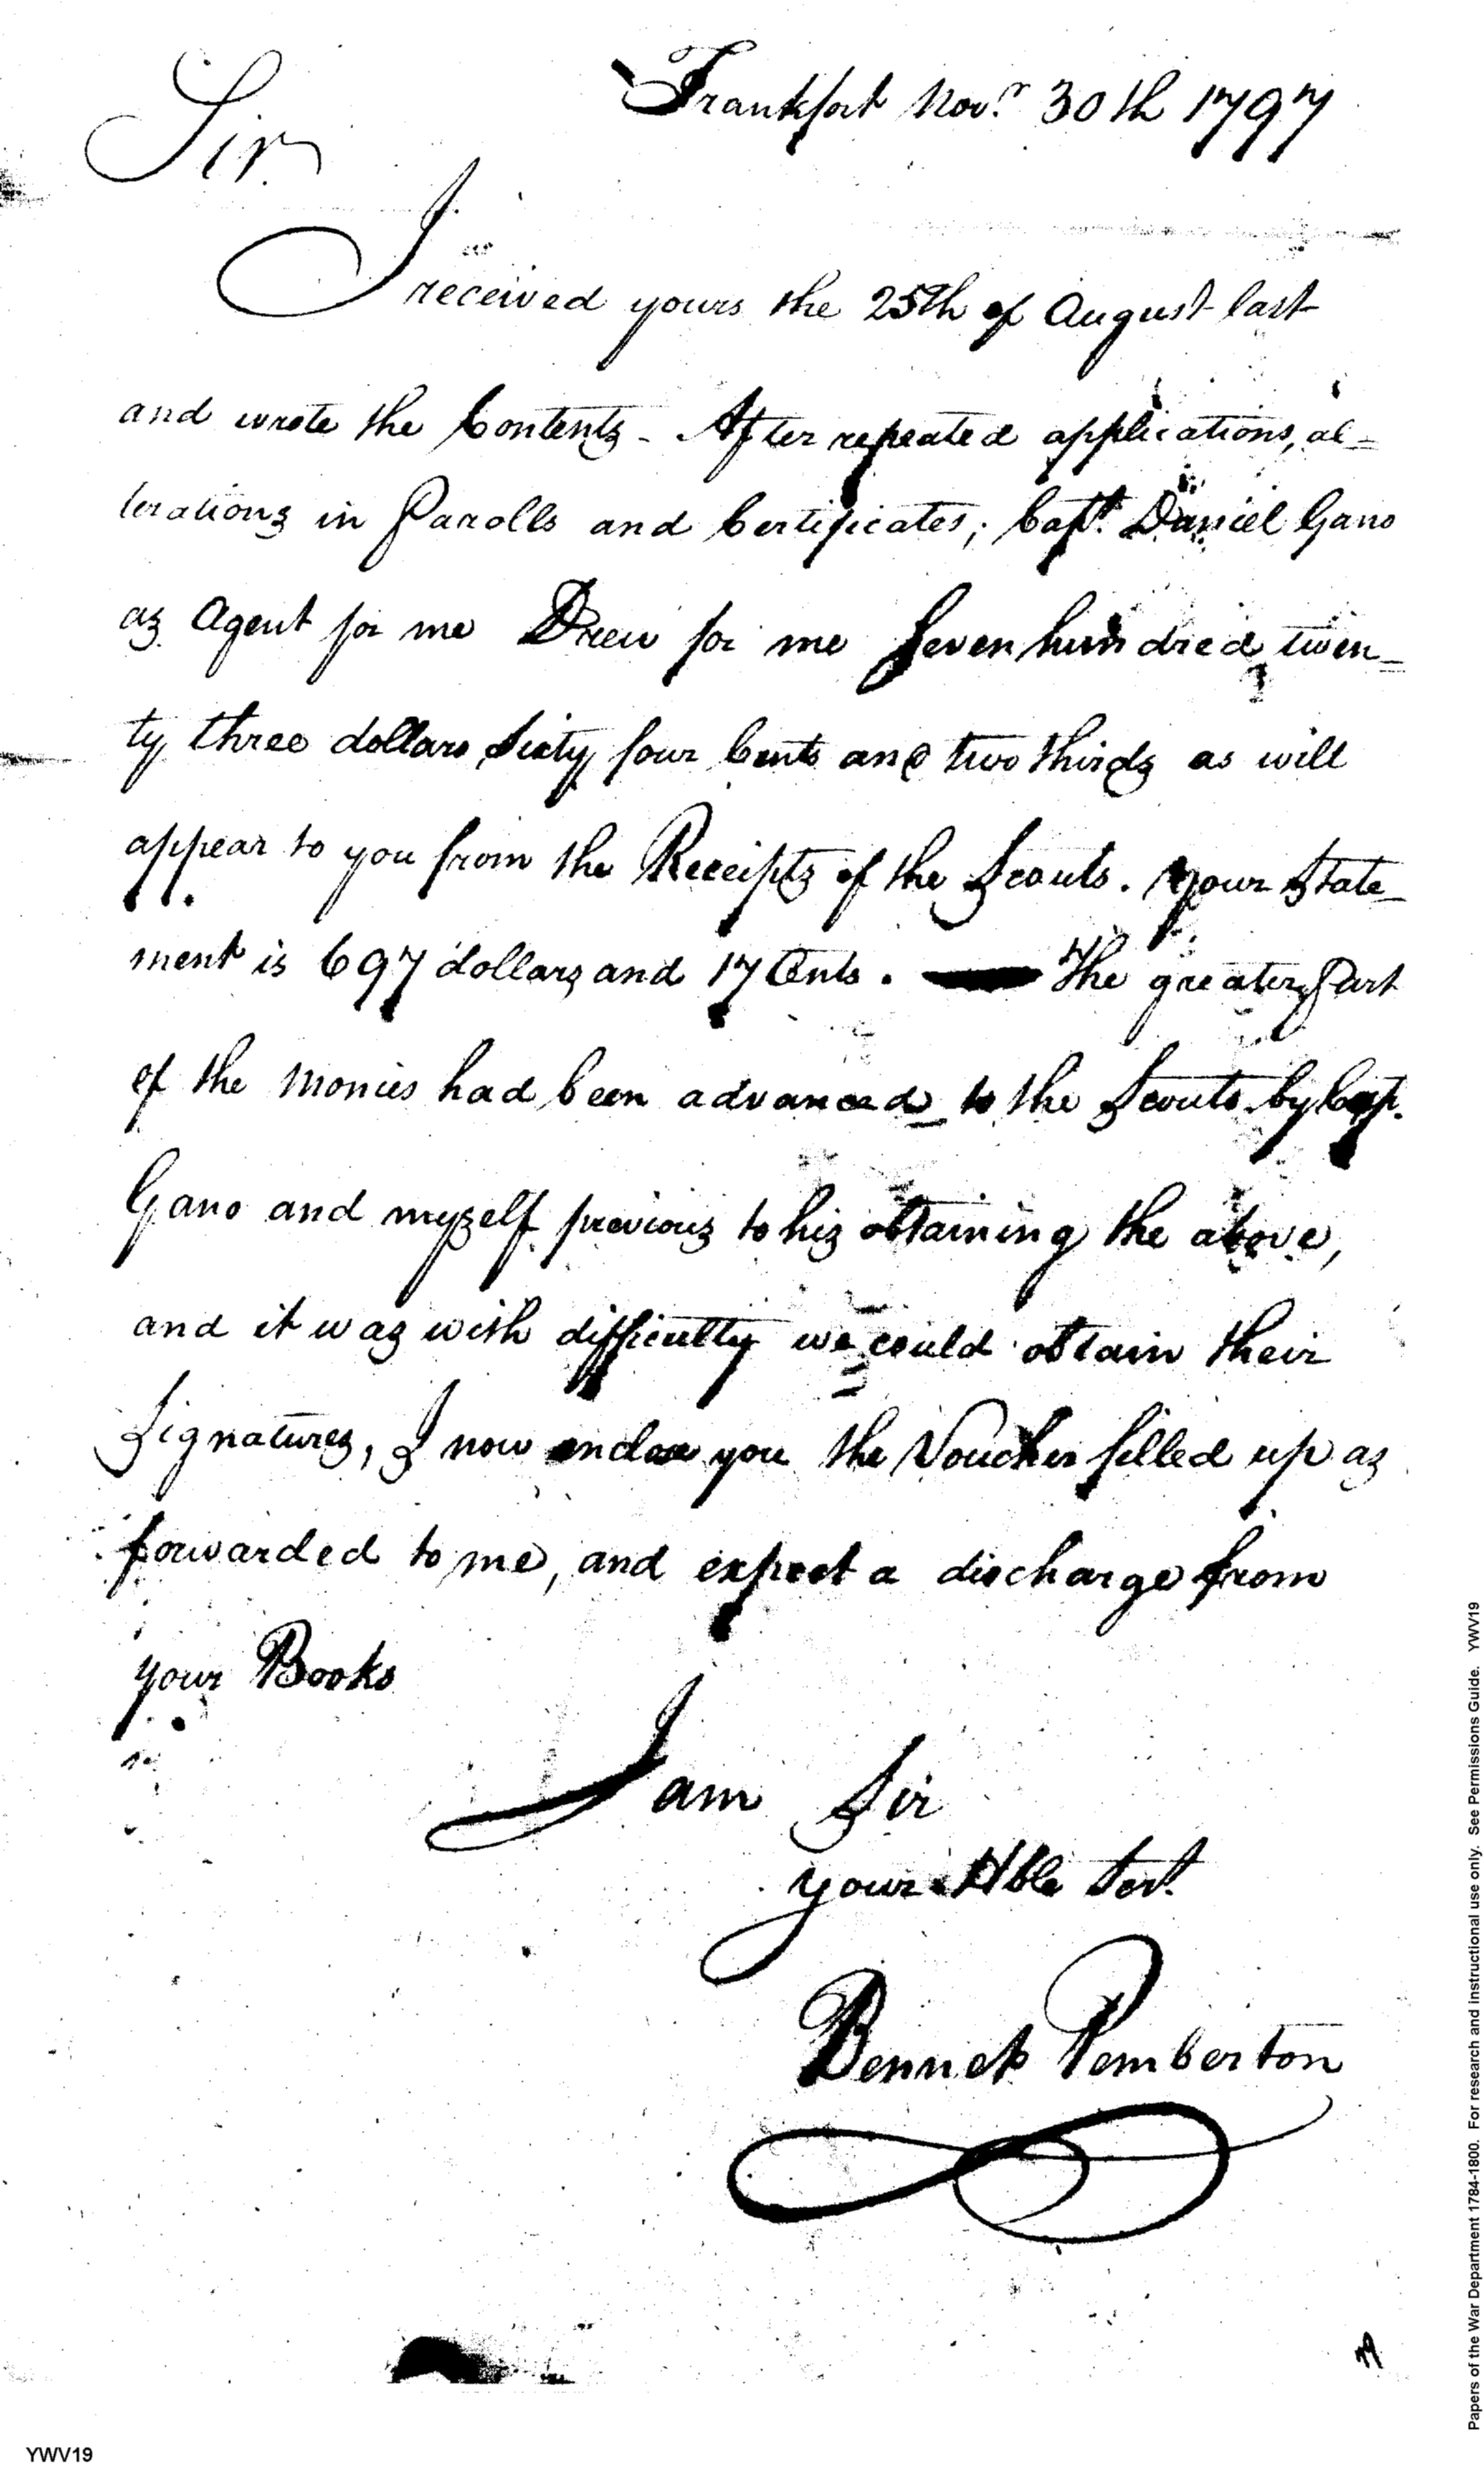 Frankfort Novr. 30th 1797
Sir.
I received yours the 25th of August last
and wrote the Contents - After repeated applications, al=
terations in Parolls and Certificates; Capt. Daniel Gano
as Agent for me Drew for me Seven hundred twen=
ty three dollars Sixty four Cents and two thirds as will
appear to you from the Receipts of the Scouts. Your State=
ment is 697 dollars and 17 Cents. The greater Part
of the Monies had been advanced to the Scouts by Capt.
Gano and myself previous to his obtaining the above,
and it was with difficulty we could obtain their
Signatures, I now enclose you the Voucher filled up as
forwarded to me, and expect a discharge from
your Books
I am Sir
your Hble Servt.
Bennet Pemberton
YWV19
Papers of the War Department 1784-1800. For research and instructional use only. See Permissions Guide. YWV19